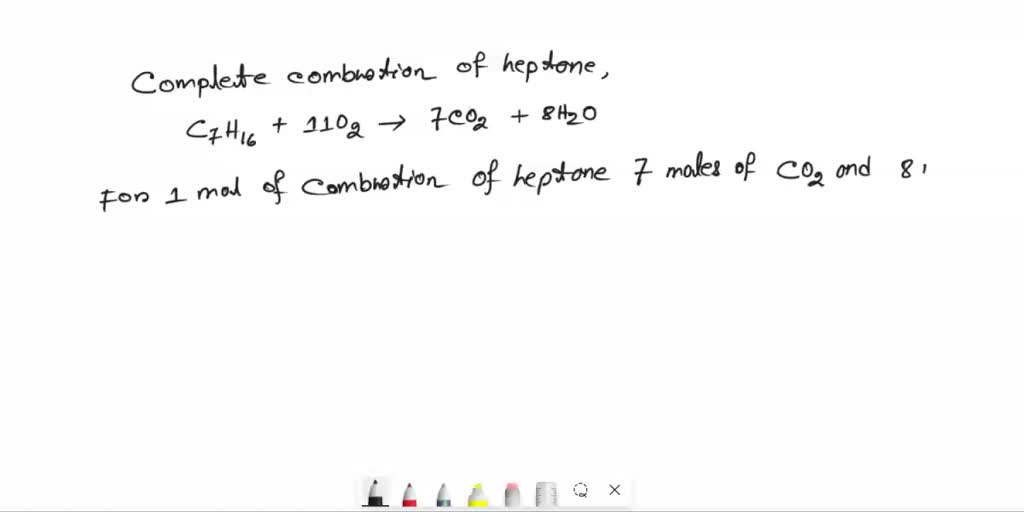 Complete combustion of heptane,
C₇H₁₆ + 11O₂ → 7CO₂ + 8H₂O
For 1 mol of combustion of heptane 7 moles of CO₂ and 8